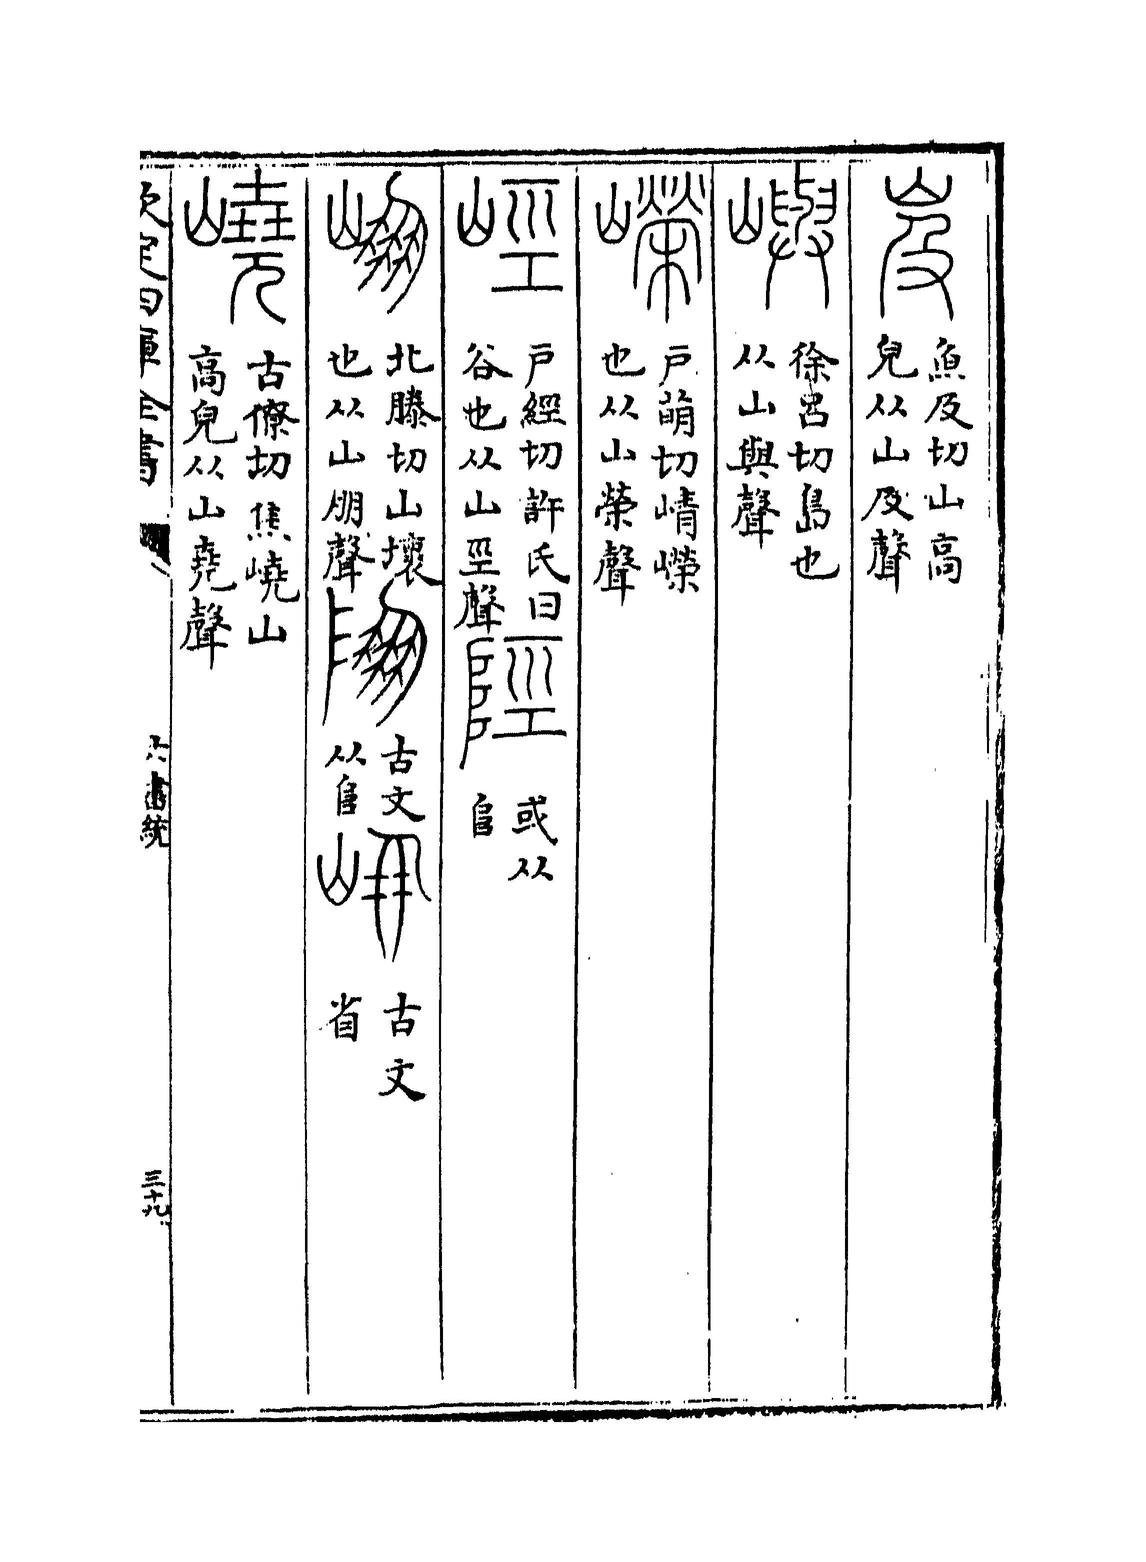 岌 魚及切山高皃从山及聲
嶼 徐呂切島也从山與聲
嶸 戶萌切崝嶸也从山榮聲
峌 戶經切許氏曰谷也从山巠聲 陘 或从𨸏
㟛 北滕切山壞也从山朋聲 𨹹 古文从𨸏 𡴷 古文省
嶢 古僚切焦嶢山高皃从山堯聲
欽定四庫全書
六書統
三十九